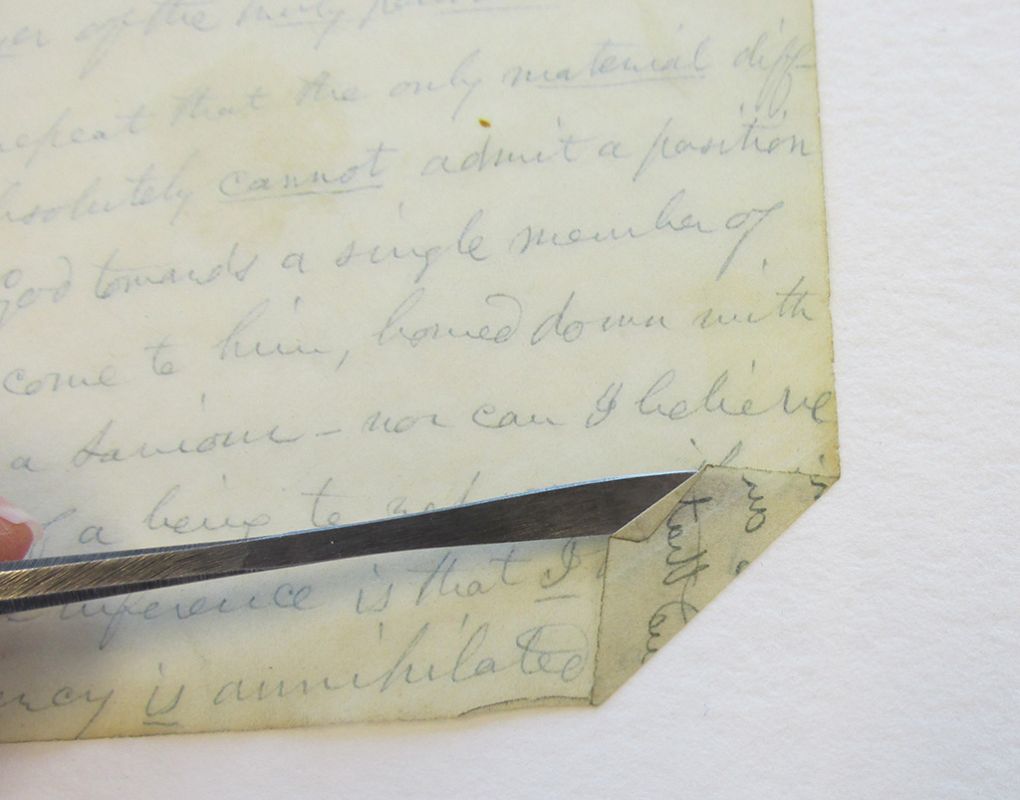 of the truly
repeat that the only material diff-
absolutely cannot admit a position
God towards a single member of
come to him, bowed down with
a Saviour - nor can I believe
a being to
inference is that I
is annihilated